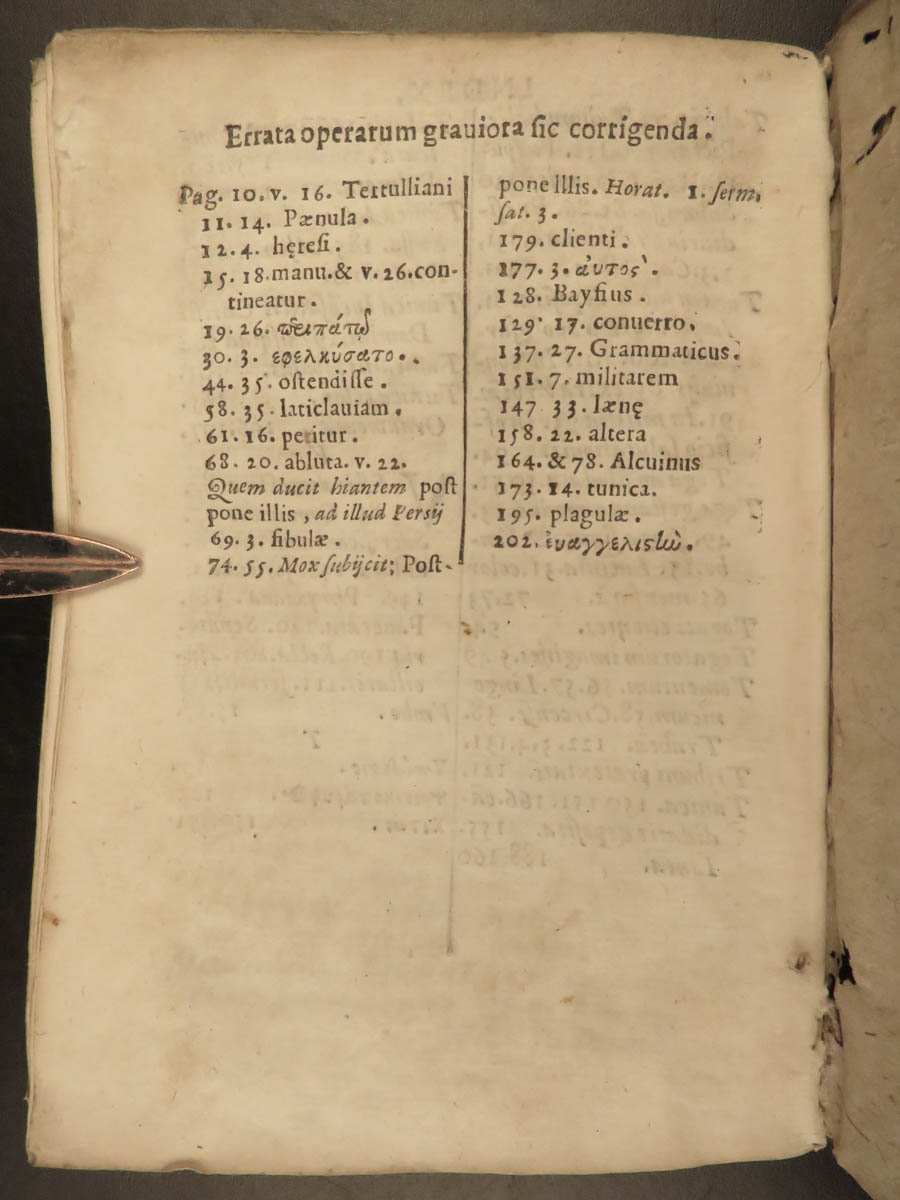 Errata operarum grauiora sic corrigenda.
Pag. 10. v. 16. Tertulliani
11. 14. Pænula.
12. 4. hęresi.
15. 18. manu. & v. 26. con-
tineatur.
19. 26.
30. 3. εφελκύσατο.
44. 35. ostendisse.
58. 35. laticlauiam.
61. 16. petitur.
68. 20. abluta. v. 22.
Quem ducit hiantem post
pone illis, ad illud Persij
69. 3. fibulæ.
74. 55. Mox subijcit; Post-
pone Illis. Horat. 1. serm.
sat. 3.
179. clienti.
177. 3. ἀυτος.
128. Bayfius.
129. 17. conuerro.
137. 27. Grammaticus.
151. 7. militarem
147 33. lænę
158. 22. altera
164. & 78. Alcuinus
173. 14. tunica.
195. plagulæ.
202.